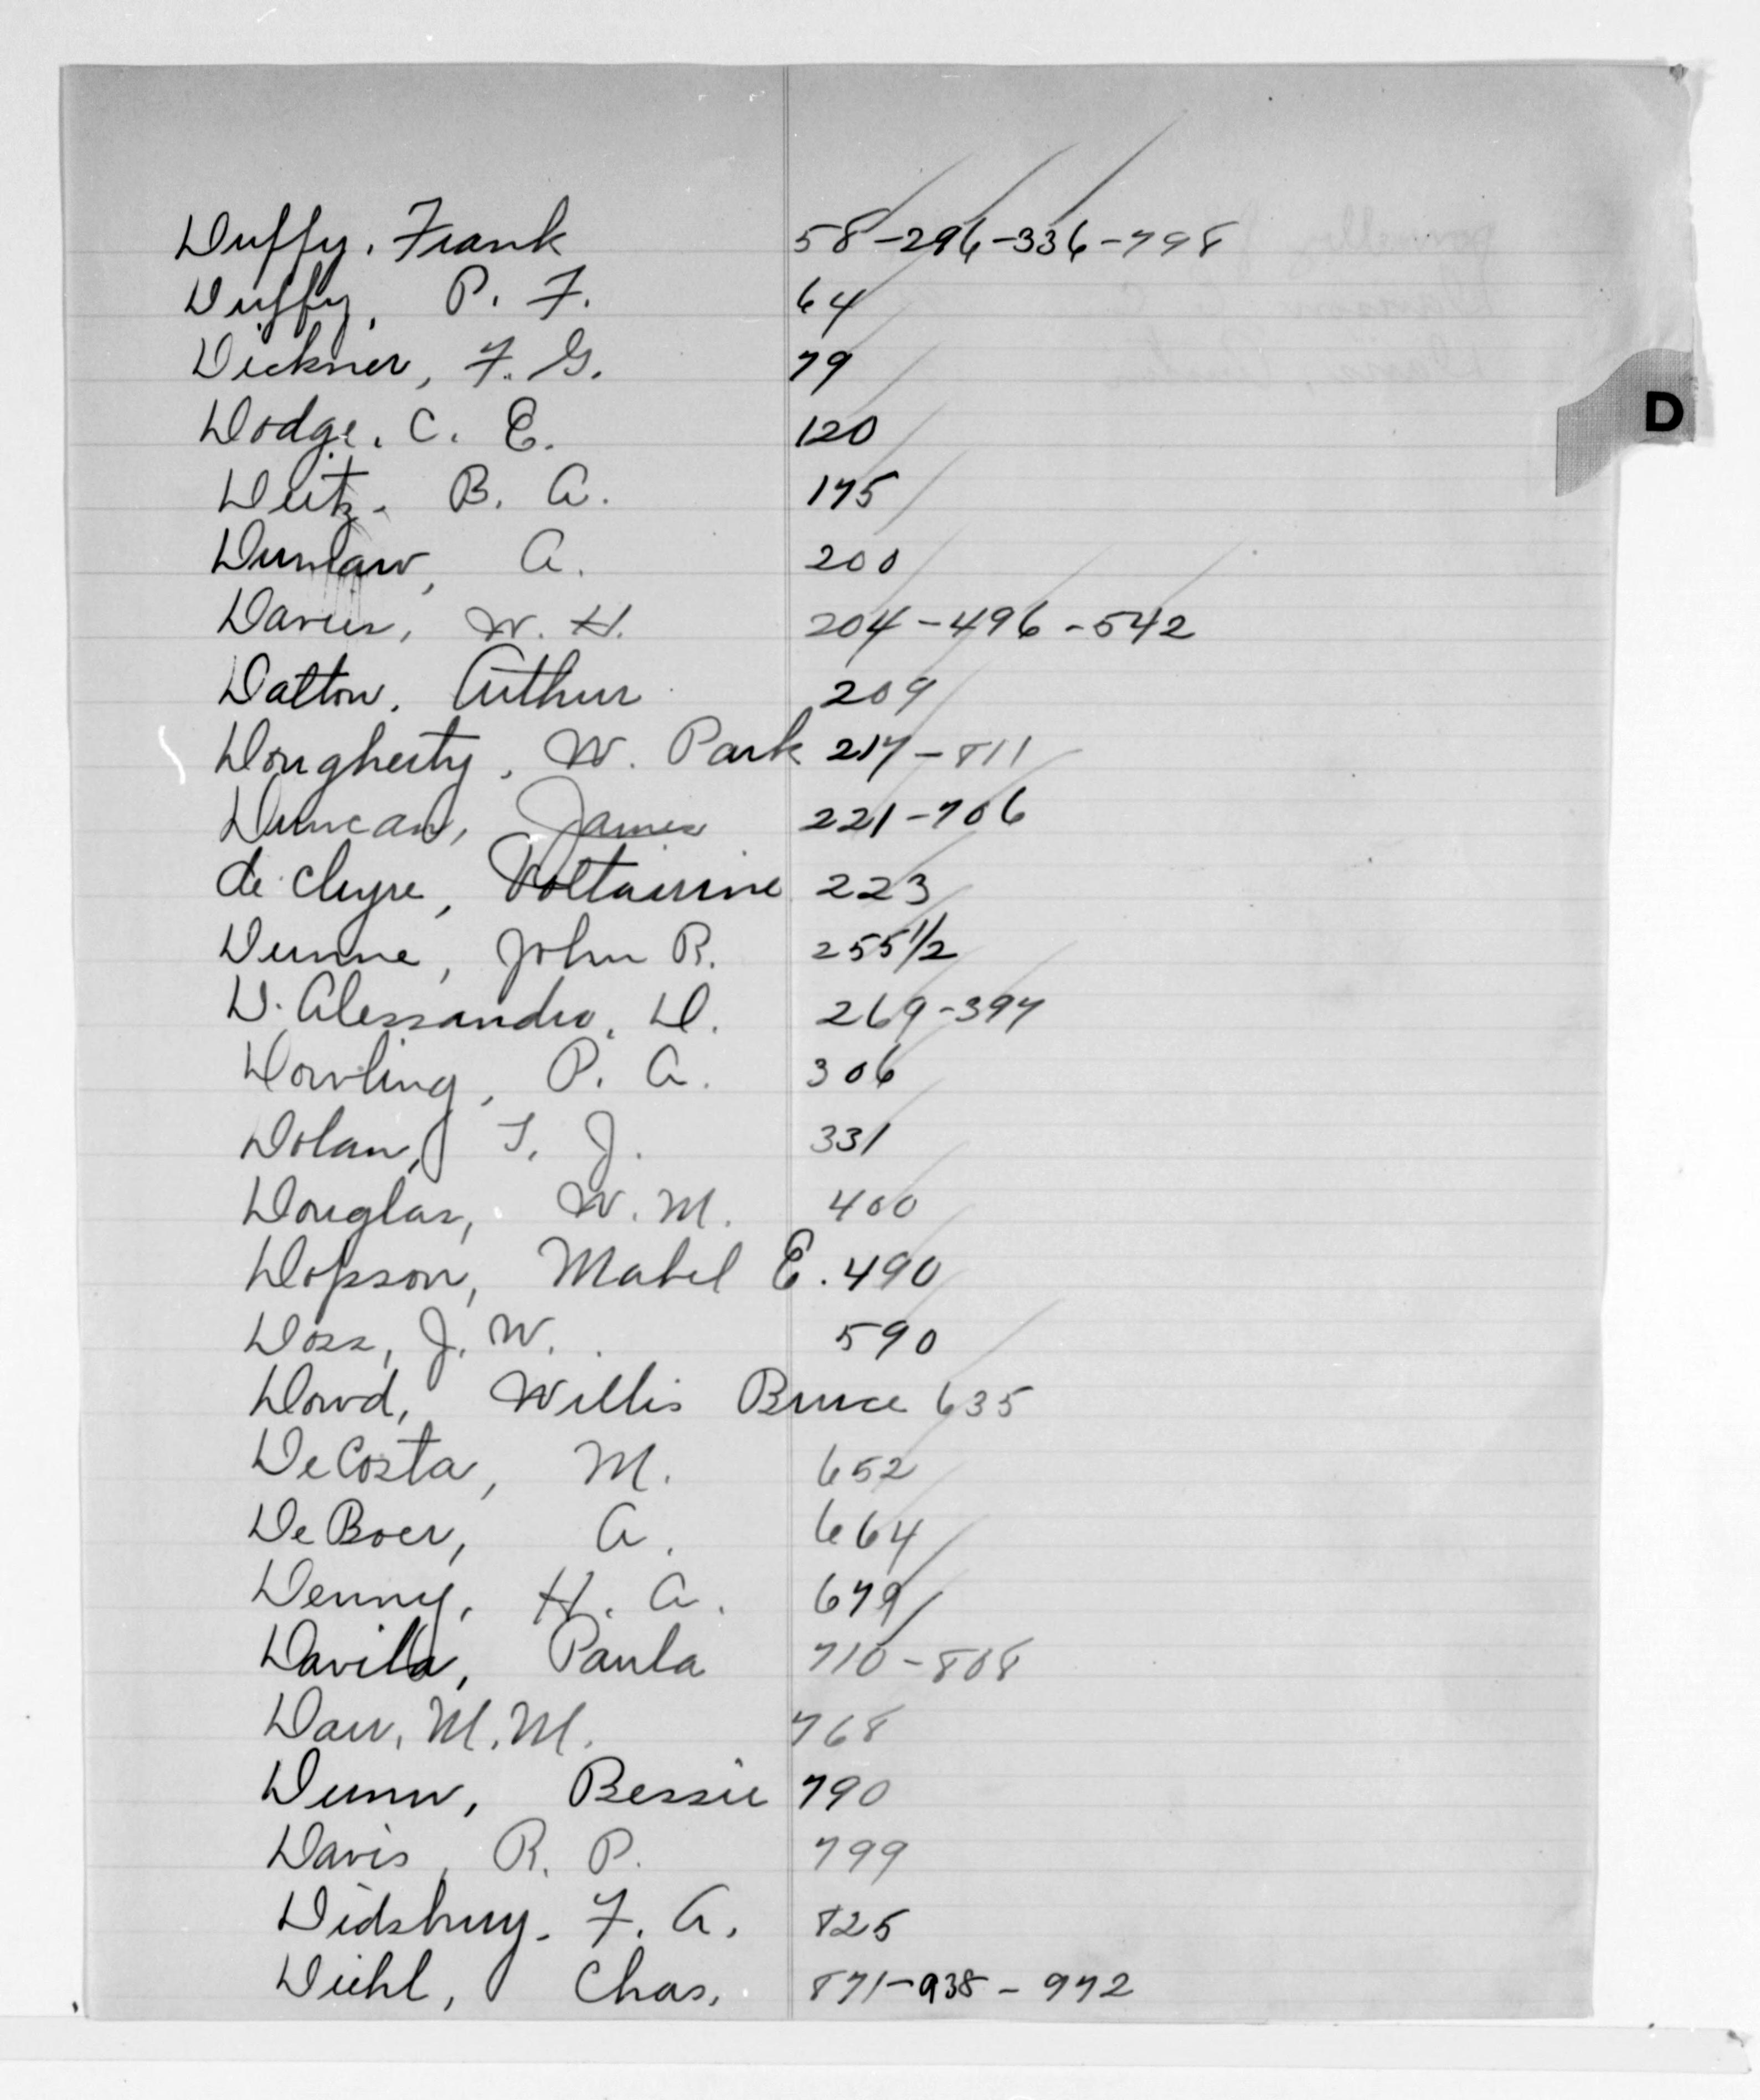 Duffy, Frank 58-296-336-798
Duffy, P. F. 64
Dickner, F. G. 79
D
Dodge, C. E. 120
Deitz, B. A. 175
Dunlaw, A. 200
Davies, W. H. 204-496-542
Dalton, Arthur 209
Dougherty, W. Park 217-811
Duncan, James 221-706
de Cleyre, Voltairine 223
Dunne, John R. 255 1/2
D. Alessandro, D. 269-397
Dowling, P. A. 306
Dolan, T. J. 331
Douglas, W. M. 400
Dopson, Mabel E. 490
Doss, J. W. 590
Dowd, Willis Bruce 635
DeCosta, M. 652
DeBoer, A. 664
Denny, H. A. 679
Davila, Paula 710-808
Darr, M. M. 768
Dunn, Bessie 790
Davis, R. P. 799
Didsbury, F. A. 825
Diehl, Chas. 871-938-972